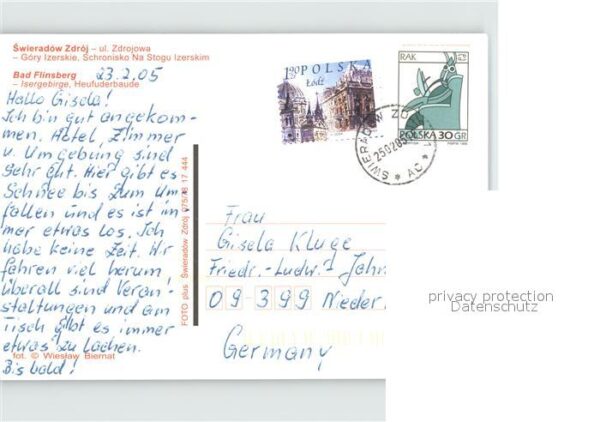 Świeradów Zdrój – ul. Zdrojowa
– Góry Izerskie, Schronisko Na Stogu Izerskim
Bad Flinsberg
– Isergebirge, Heufuderbaude
23.2.05
Hallo Gisela!
Ich bin gut angekom-
men. Hotel, Zimmer
u. Umgebung sind
sehr gut. Hier gibt es
Schnee bis zum Um
fallen und es ist im
mer etwas los. Ich
habe keine Zeit. Wir
fahren viel herum
überall sind Veran-
staltungen und am
Tisch gibt es immer
etwas zu lachen.
Bis bald!
fot. © Wiesław Biernat
FOTO plus Świeradów Zdrój 075/78 17 444
1,30 POLSKA
Łódź
RAK
POLSKA 30 GR
ŚWIERADÓW ZD
250205
Frau
Gisela Kluge
Friedr.-Ludw.-Jahn
09399 Nieder
Germany
privacy protection
Datenschutz